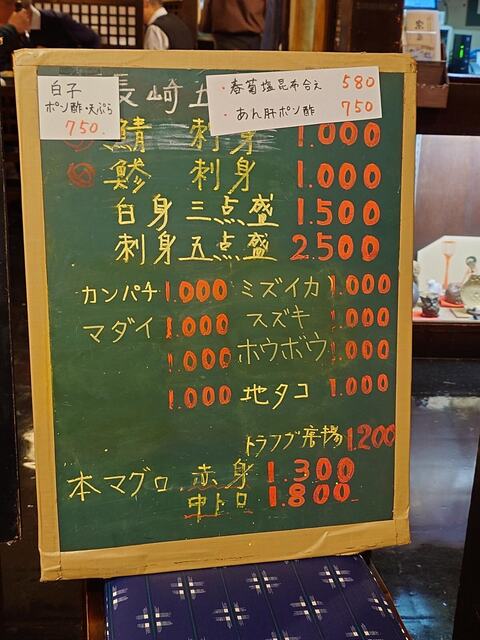 白子
ポン酢・天ぷら
750.
・春菊塩昆布合え 580
・あん肝ポン酢 750
長崎五
鯖 刺身 1.000
鰺 刺身 1.000
白身三点盛 1.500
刺身五点盛 2.500
カンパチ 1.000 ミズイカ 1.000
マダイ 1.000 スズキ 1.000
1.000 ホウボウ 1.000
1.000 地タコ 1.000
トラフグ 1.200
本マグロ 赤身 1.300
中トロ 1.800